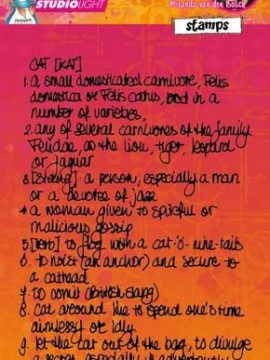 STUDIOLIGHT
Miranda van den Bosch
stamps
CAT [KAT]
1. a small domesticated carnivore, Felis
domestica or Felis catus, bred in a
number of varieties,
2. any of several carnivores of the family
Felidae, as the lion, tiger, leopard
or jaguar
3. [slang] a person, especially a man
or a devotee of jazz
4. a woman given to spiteful or
malicious gossip
5. [verb] to flog with a cat-o'-nine-tails
6. to hoist (an anchor) and secure to
a cathead
7. to vomit (british slang)
8. cat around like to spend one's time
aimlessly or idly
9. let the cat out of the bag, to divulge
a secret, especially inadvertently